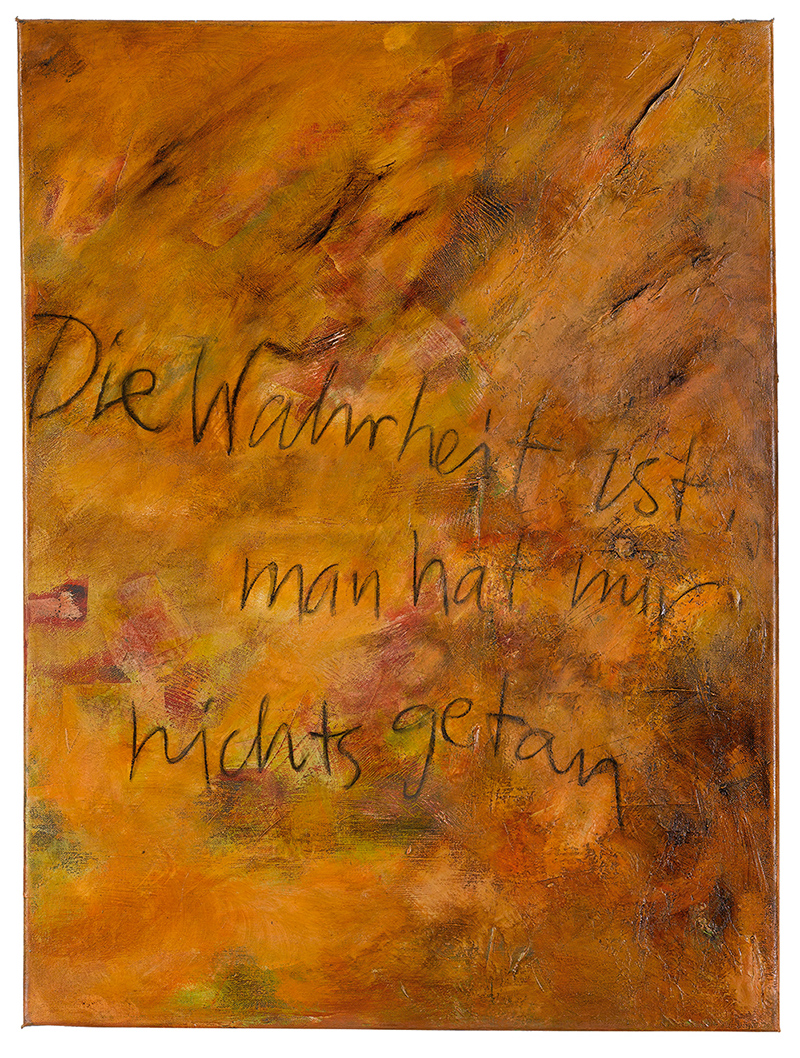 Die Wahrheit ist,
man hat mir
nichts getan